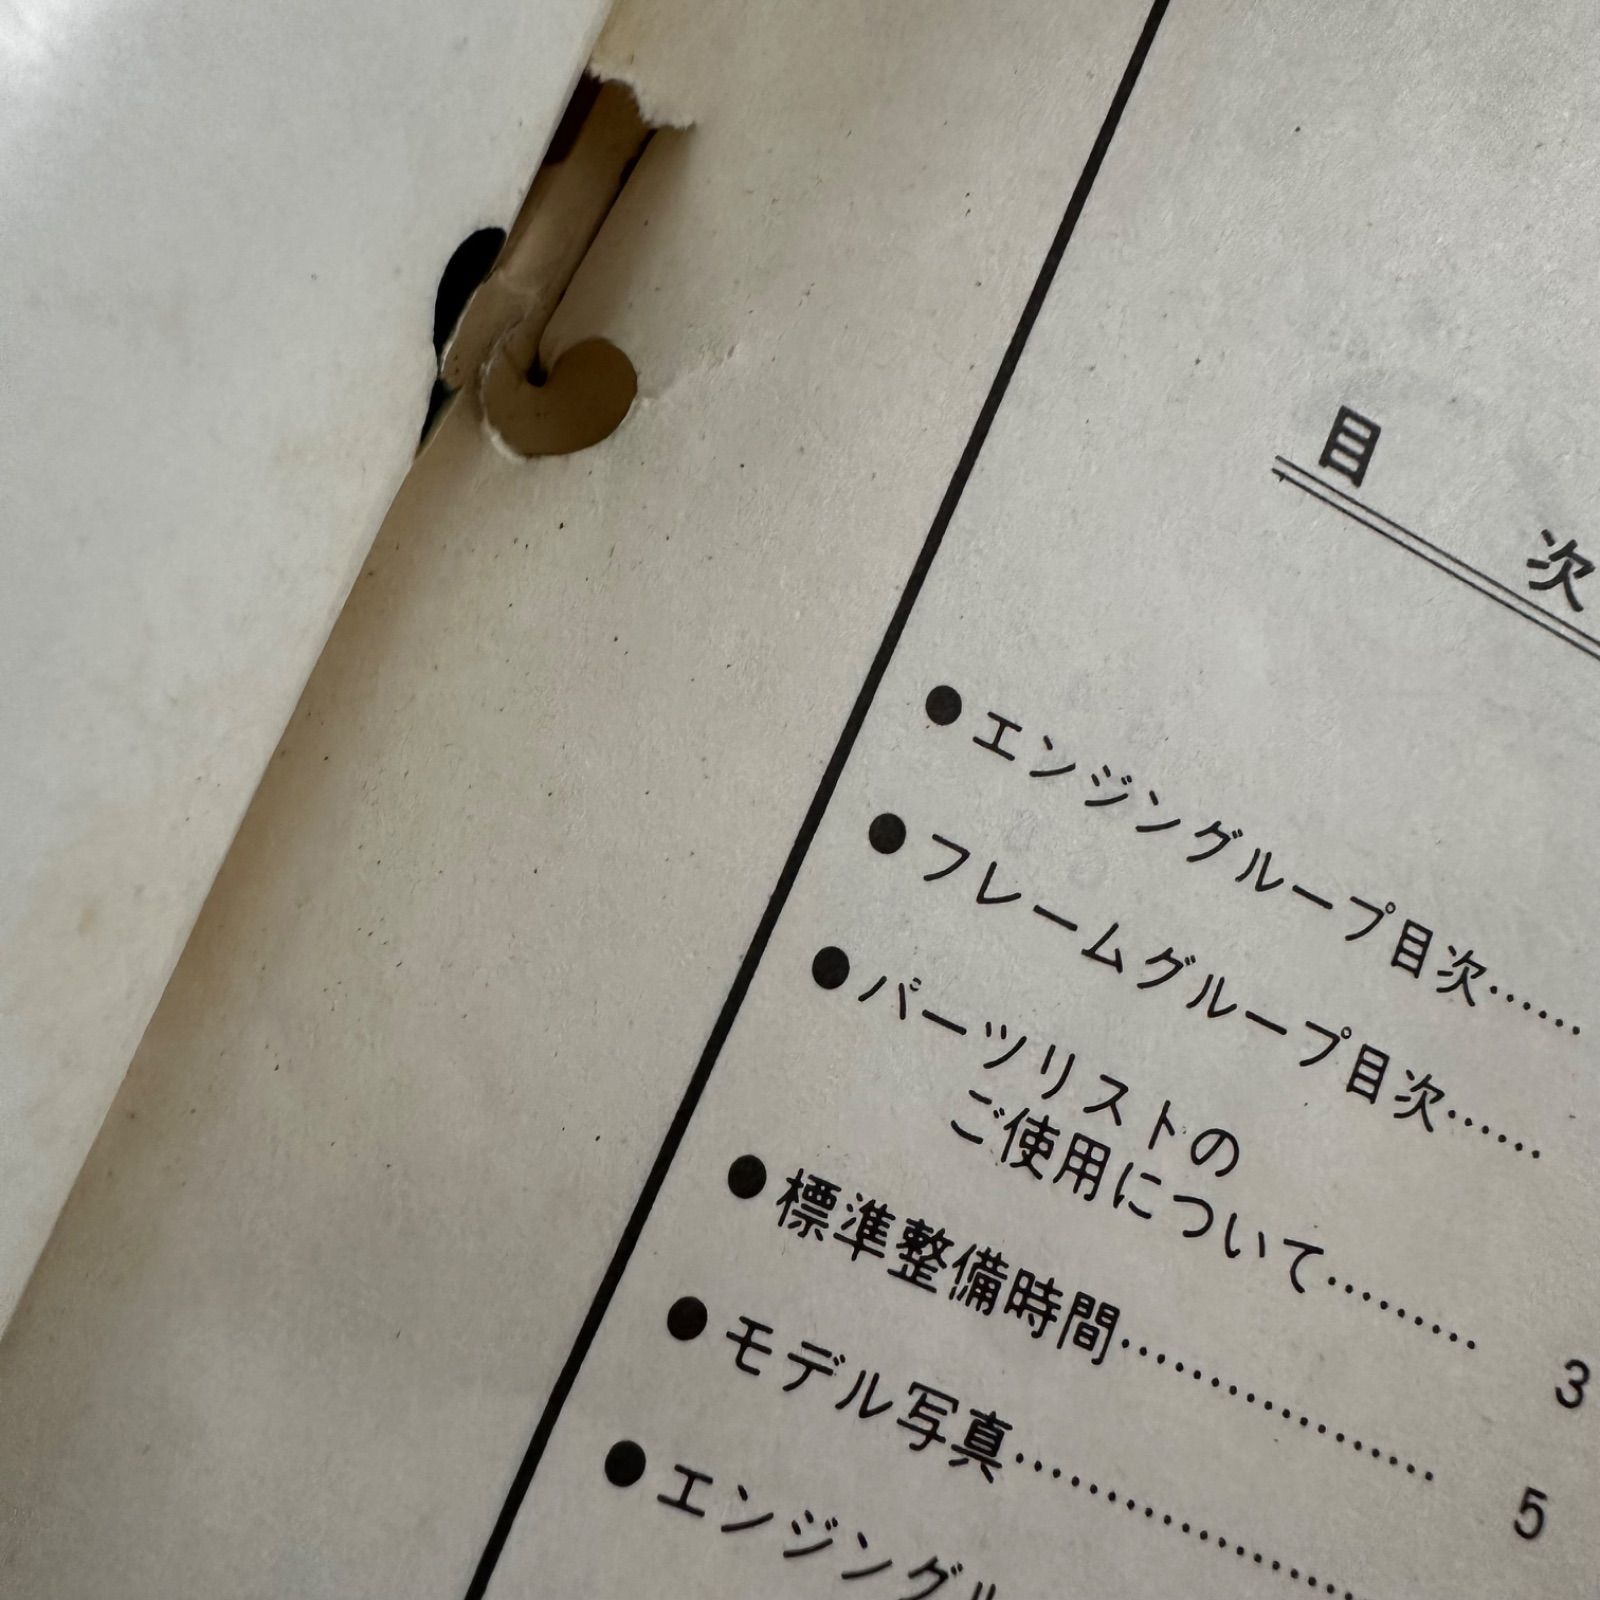 目次
●エンジングループ目次……
●フレームグループ目次……
●パーツリストの
ご使用について……… 3
●標準整備時間………………… 5
●モデル写真…………………
●エンジング